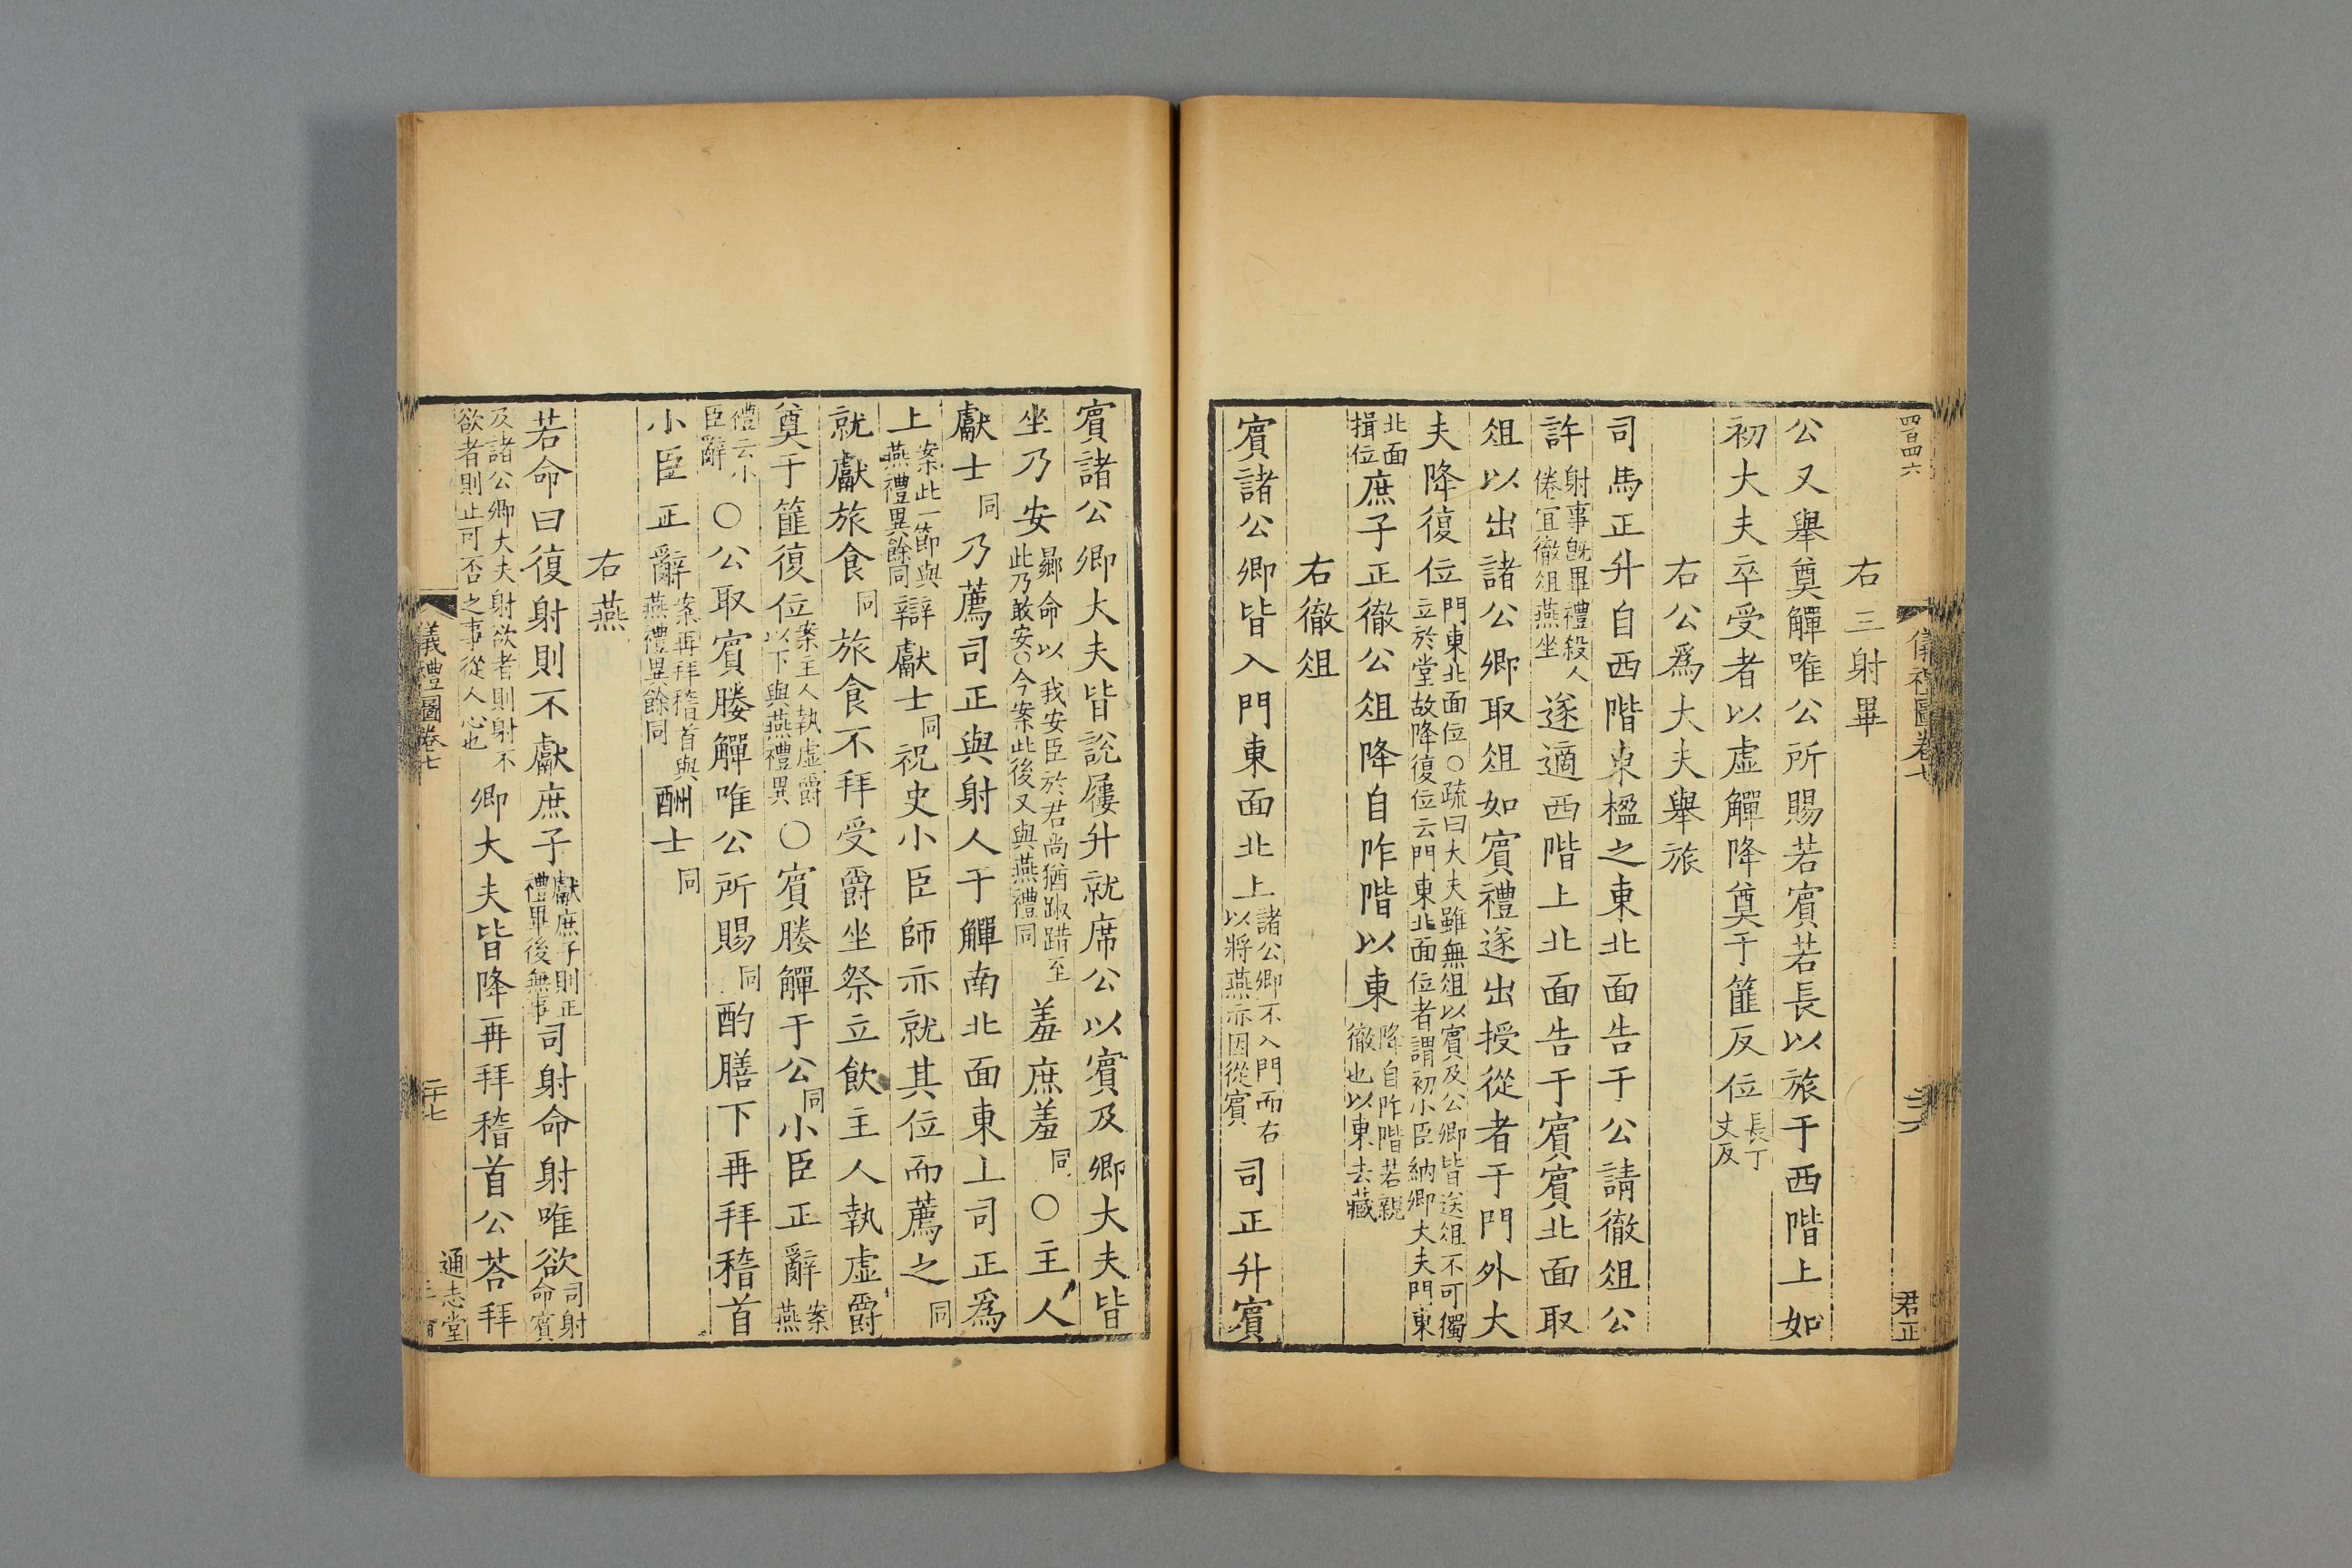 四百四六
儀禮圖卷七
君正
右三射畢
公又舉奠觶唯公所賜若賓若長以旅于西階上如
初大夫卒受者以虛觶降奠于篚反位長丁丈反
右公爲大夫舉旅
司馬正升自西階東楹之東北面告于公請徹俎公
許射事旣畢禮殺人倦宜徹俎燕坐遂適西階上北面告于賓賓北面取
俎以出諸公卿取俎如賓禮遂出授從者于門外大
夫降復位門東北面位○疏曰大夫雖無俎以賓及公卿皆送俎不可獨立於堂故降復位云門東北面位者謂初小臣納卿大夫門東
北面揖位庶子正徹公俎降自阼階以東降自阼階若親徹也以東去藏
右徹俎
賓諸公卿皆入門東面北上諸公卿不入門而右以將燕亦因從賓司正升賓
賓諸公卿大夫皆說屨升就席公以賓及卿大夫皆
坐乃安曏命以我安臣於君尚猶踧踖至此乃敢安○今案此後又與燕禮同羞庶羞同○主人
獻士同乃薦司正與射人于觶南北面東上司正爲
上案此一節與燕禮異餘同辯獻士同祝史小臣師亦就其位而薦之同
就獻旅食同旅食不拜受爵坐祭立飲主人執虛爵
奠于篚復位案主人執虛爵以下與燕禮異○賓媵觶于公同小臣正辭案燕
禮云小臣辭○公取賓媵觶唯公所賜同酌膳下再拜稽首
小臣正辭案再拜稽首與燕禮異餘同酬士同
右燕
若命曰復射則不獻庶子獻庶子則正禮畢後無事司射命射唯欲司射命賓
及諸公卿大夫射欲者則射不欲者則止可否之事從人心也卿大夫皆降再拜稽首公荅拜
儀禮圖卷七
二十七
通志堂